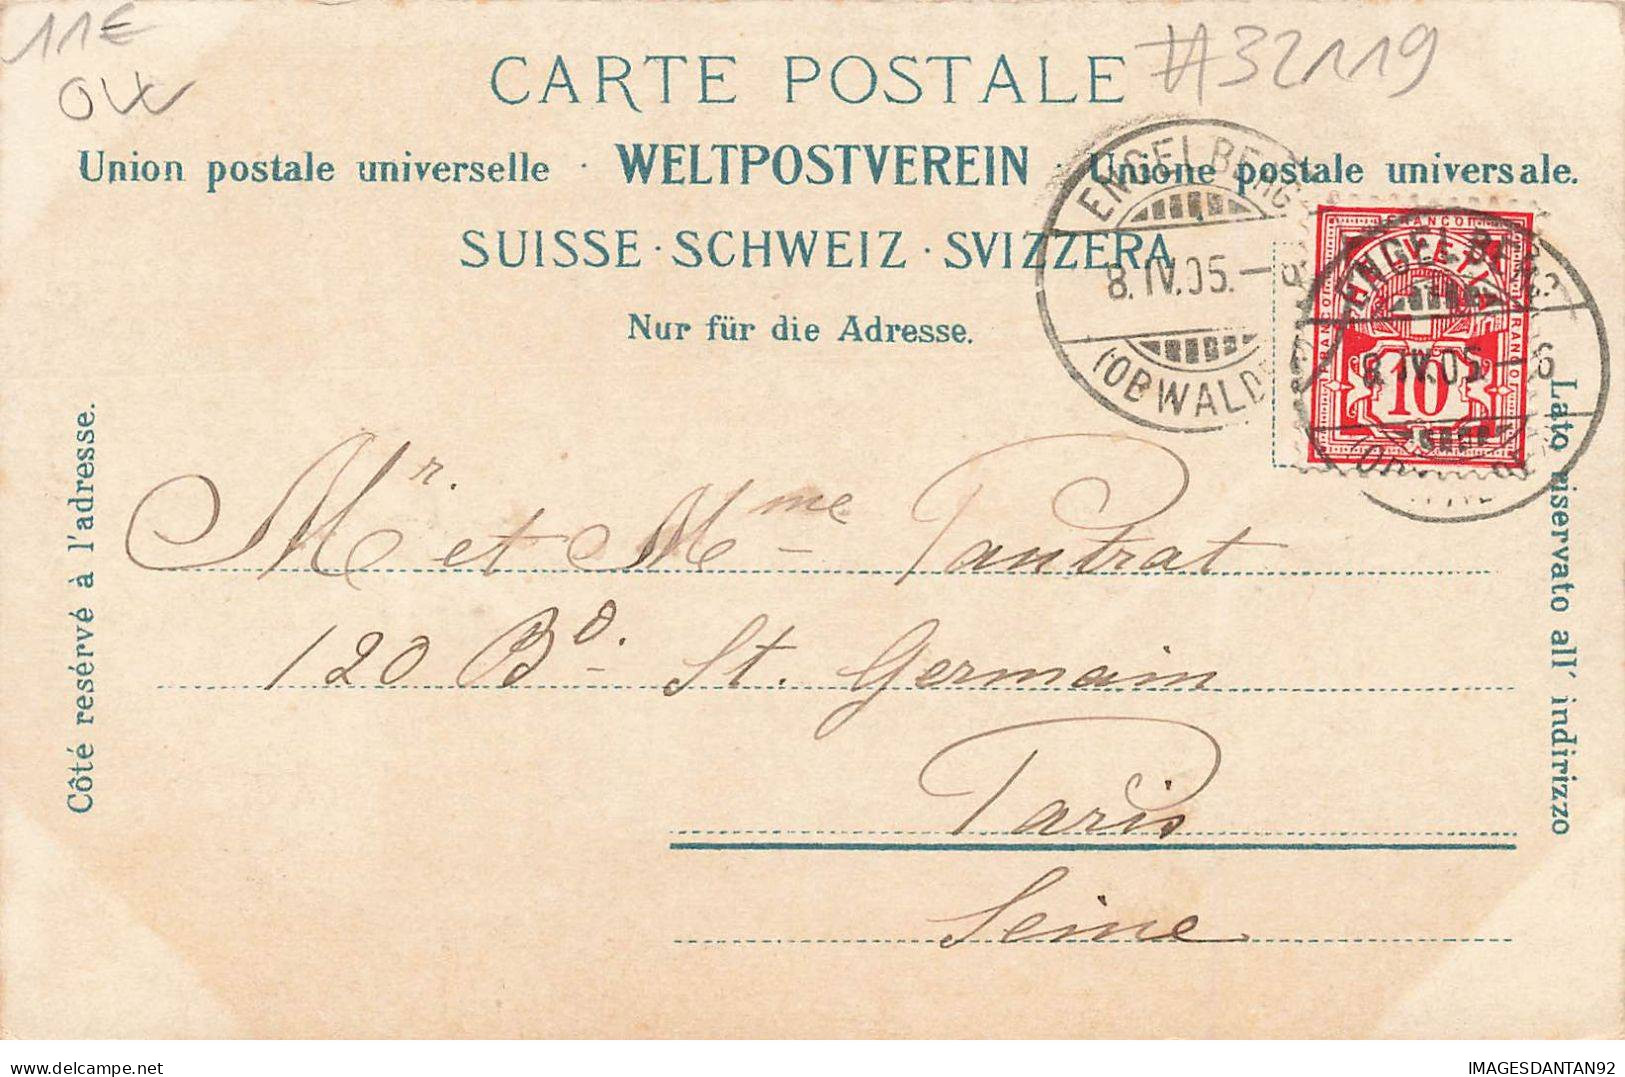 11€
OW
#32119
CARTE POSTALE
Union postale universelle · WELTPOSTVEREIN · Unione postale universale.
SUISSE · SCHWEIZ · SVIZZERA
Nur für die Adresse.
ENGELBERG
8.IV.05.–
(OBWALDEN)
FRANCO
HELVETIA
10
ENGELBERG
8.IV.05.–6
Côté resérvé à l'adresse.
Lato riservato all' indirizzo
Mr. et Mme Pantrat
120 Bd. St. Germain
Paris
Seine
IMAGESDANTAN92